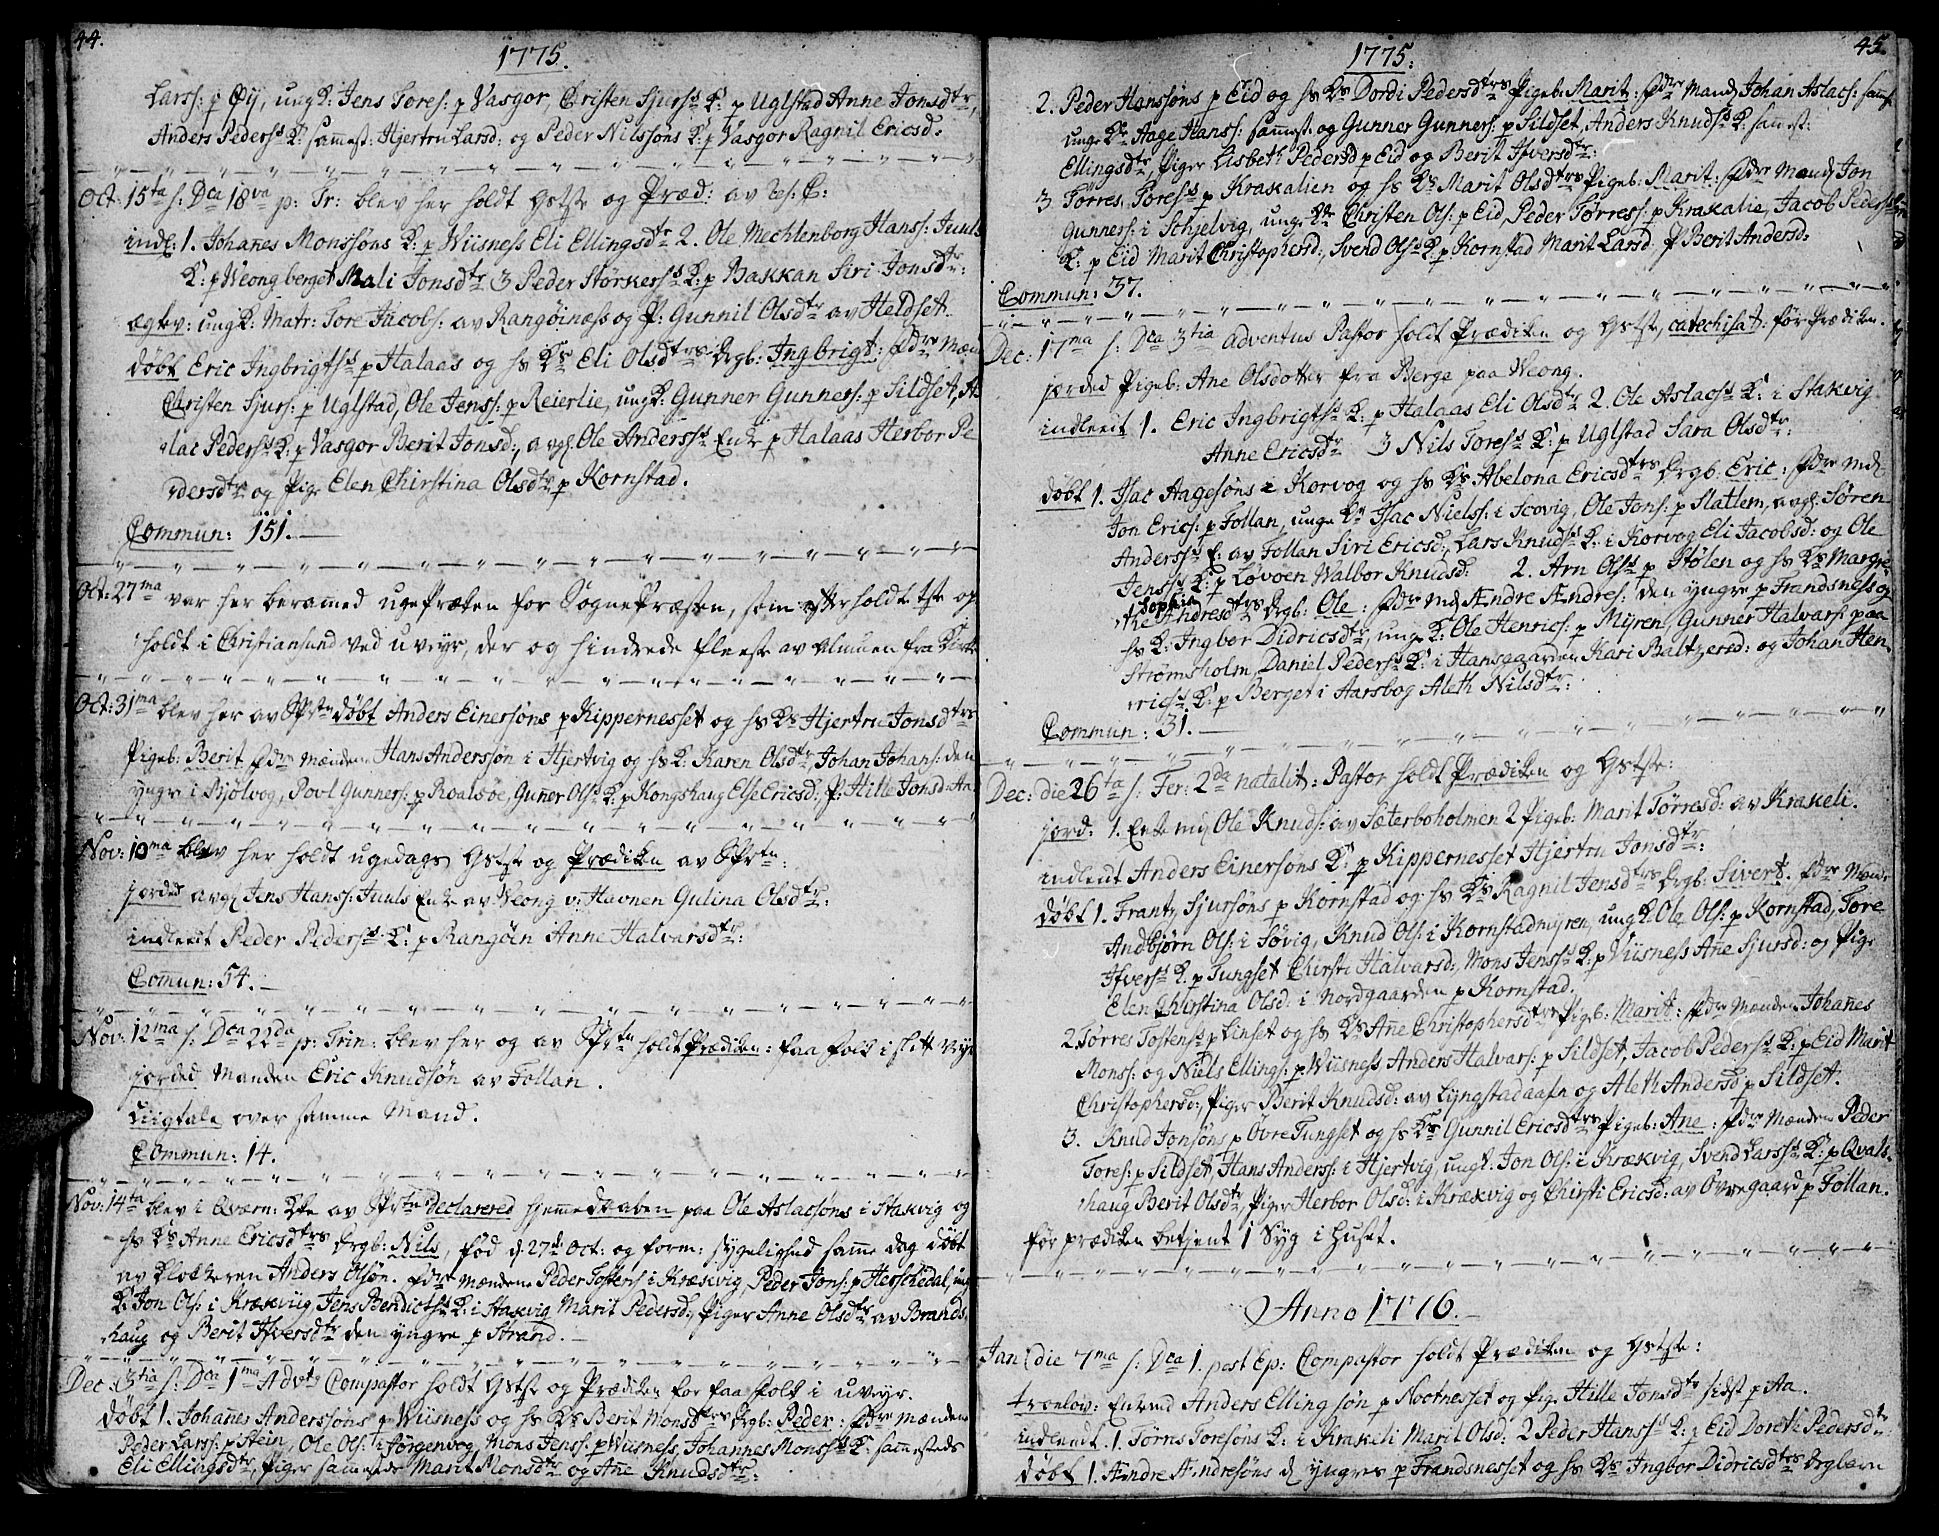 44.
1775.
Larss: p Øij, ungK: Jens Tores: p Vasgor, Christen Sjurss K: p Uglstad Anne Jonsdtr,
Anders Pederss K: sammest: Hjertru Larsd: og Peder Nilssons K: p Vasgor Ragnil Ericsd:
Oct: 15ta s: Dca 18va p: Tr: blev her holdt Gstste og Præd: av res: C:
indl: 1. Johanes Monssøns K: p Wiisness Eli Ellingsdtr 2. Ole Mechlenborg Hanss: Juuls
K: p Weongberget Mali Jonsdtr 3 Peder Størkerss K: p Bakkan Siri Jonsdtr:
ægtev: ungK: Matr: Tore Jacobs: av Rangøinæss og P: Gunnil Olsdtr av Heldset.
døbt Eric Ingbrigtss p Halaas og hs Ks Eli Olsdtrs Drgb: Ingbrigt: fdre Mæn
Christen Sjurs: p Uglstad, Ole Jenss: p Reierlie, ungK: Gunner Gunners: p Sildset, As
lac Pederss K: p Vasgor Berit Jonsd:, avgl: Ole Anderss Enke p Halaas Herbor Pe
dersdtr og Pige Elen Chirstina Olsdtr p Kornstad.
Commun: 151.
Oct: 27ma var her berammed ugePræken for SognePræsten, som efterholdt tste op
holdt i Christiansund ved uveyr, der og hindrede fleeste av Almuen fra Kirke
Oct: 31ma blev her av SPrstn døbt Anders Einersøns p Kippernesset og hs Ks Hjertru Jonsdtrs
Pigeb: Berit fdre mænden Hans Anderssøn i Hjertvig og hs K: Karen Olsdtr, Johan Johans: den
yngre i Bjølvog, Povl Gunners: p Roalsøe, Guner Olss K: p Kongshaug Else Ericsd:, P: Hille Jonsd: Aa
Nov: 10ma blev her holdt ugedags Gstste og Prædiken av SPrstn:
jorded avgl Jens Hanss: Juuls Enke av Weong v: Havnen Gulina Olsdtr:
indleedt Peder Pederss K: p Rangøen Anne Halvarsdtr:
Comun: 54.
Nov: 12ma s: Dca 22da p: Trin: blev her og av SPrstn holdt Prædiken: faa folk i slitt veyr
jorded Manden Eric Knudsøn av Follan.
Liigtale over samme Mand.
Commun: 14.
Nov: 14ta blev i Qværn: Kke av SPrstn declarered hjemmedaaben paa Ole Aslacsøns i Stakvig og
hs Ks Anne Ericsdtrs Drgb: Nils, fød d: 27de Oct: og form: sygelighed samme dag døbt
av Klokkeren Anders Olsøn. fdre mændene Peder Tostens i Krækvig, Peder Jons: p Herskedal, ung
K: Jon Ols: i Krækviig, Jens Bendictss K: i Stakvig Marit Pedersd:, Piger Anne Olsdtr av Brands
haug og Berit Ifversdtr den yngre p Strand.
Dec: 3tia s: Dca 1ma Advts Compastor holdt Gstste og Prædiken for faa folk i uveyr.
døbt 1. Johanes Anderssøns p Wiisness og hs Ks Berit Monsdtrs Drgb: Peder: fdre mændene
Peder Larss: p Stein, Ole Ols: i Jørgenvog, Mons Jenss: p Wiisness, Johannes Monss K: sammesteds
Eli Ellingsdtr, Piger sammesteds Marit Monsdtr og Ane Knudsdtr:
45.
1775:
2. Peder Hanssøns p Eid og hs Ks Dordi Pedersdtrs Pigeb: Marit: fdre Mand Johan Aslacs: samst
unge Kr Aage Hanss: sammest: og Gunner Gunners: p Sildset, Anders Knudss K: sammest:
Ellingsdtr, Piger Lisbeth Pedersd p Eid og Berit Ifversdtr:
3 Tørres Toress p Krakalien og hs Ks Marit Olsdtrs Pigeb: Marit: fdre Mænd Jon
Gunners: i Schjelvig, unge Kr Christen Ols: p Eid, Peder Tørress: p Krakalie, Jacob Pederss
K: p Eid Marit Christophersd:, Svend Olss K: p Kornstad Marit Larsd: P Berit Andersd:
Commun: 37.
Dec: 17ma s: Dca 3tia Adventus Pastor holdt Prædiken og Gstste, catechisat: før Prædiken.
jorded Pigeb: Ane Olsdotter fra Berge paa Weong.
indleedt 1. Eric Ingbrigtss K: p Halaas Eli Olsdtr 2. Ole Aslacss K: i Stakvig
Anne Ericsdtr 3 Nils Toress K: p Uglstad Sara Olsdtr:
døbt 1. Isac Aagesøns i Korvog og hs Ks Abelona Ericsdtrs Drgb: Eric: fdre Md
Jon Erics: p Follan, unge Kr Isac Niels: i Scovig, Ole Jons: p Slatlem, avgl: Søren
Anderss E: av Follan Siri Ericsd:, Lars Knudss K: i Korvog Eli Jacobsd: og Ole
Jenss K: p Løvøen Walbor Knudsd: 2. Arn Olss p Stølen og hs Ks Margre
the Sophia Andresdtrs Drgb: Ole: fdre Md Ændre Ændres: den yngre p Frandsness og
hs K: Ingbor Didricsdtr, ungK: Ole Henrics: p Myren, Gunner Halvars: paa
Strømsholm, Daniel Pederss K: i Hansgaarden Kari Baltzered: og Johan Hen
ricss K: p Berget i Aarsbog Aleth Nilsdtr:
Commun: 31.
Dec: die 26ta s: Fer: 2da natalit: Pastor holdt Prædiken og Gstste:
jord: 1. Enkem Ole Knuds: av Sæterboholmen 2 Pigeb: Marit Tørresd: av Krakeli.
indleedt Anders Einersøns K: p Kippernesset Hjertru Jonsdtr:
døbt 1. Frantz Sjursøns p Kornstad og hs Ks Ragnil Jensdtrs Drgb: Sivert. fdre Mænde
Andbjørn Ols: i Søvig, Knud Ols: i Kornstadmyren, ungK: Ole Ols: p Kornstad, Tore
Ifverss K: p Tungset Chirsti Halvarsd:, Mons Jenss K: p Viisness Ane Sjursd: og Pige
Elen Chirstina Olsd: i Nordgaarden p Kornstad.
2 Tørres Tostenss p Linset og hs Ks Ane Christophersdtrs Pigeb: Marit: fdre Mændene Johanes
Monss: og Niels Ellings: p Wiisness Anders Halvars: p Sildset, Jacob Pederss K: p Eid Marit
Christophersd:, Piger Berit Knudsd: av Lyngstadaasn og Aleth Andersd p Sildset.
3. Knud Jonsøns p Øvre Tungset og hs Ks Gunnil Ericsdtrs Pigeb: Ane: fdre Mændene Peder
Tores: p Sildset, Hans Anderss: i Hjertvig, ungK: Jon Ols: i Krækvig, Svend Larss K: p Qvals
haug Berit Olsdtr, Piger Herbor Olsd: i Krækvig og Chirsti Ericsd: av Øvregaard p Follan.
før prædiken betjent 1 Syg i Huset.
Anno 1776.
Jan: die 7ma s: Dca 1. post Ep: Compastor holdt Prædiken og Gstste:
troelov: Enkmd Anders Elling søn p Nootnesset og Pige Hille Jonsdtr sidst p Aa.
indleedt: 1. Tørres Toresøns K: i Krakeli Marit Olsd: 2 Peder Hanss K: p Eid Dorethe Pedersdtr
døbt 1. Ændre Andresøns d yngres p Frandsnesset og hs Ks Ingbor Didricsdtrs Drgbarn